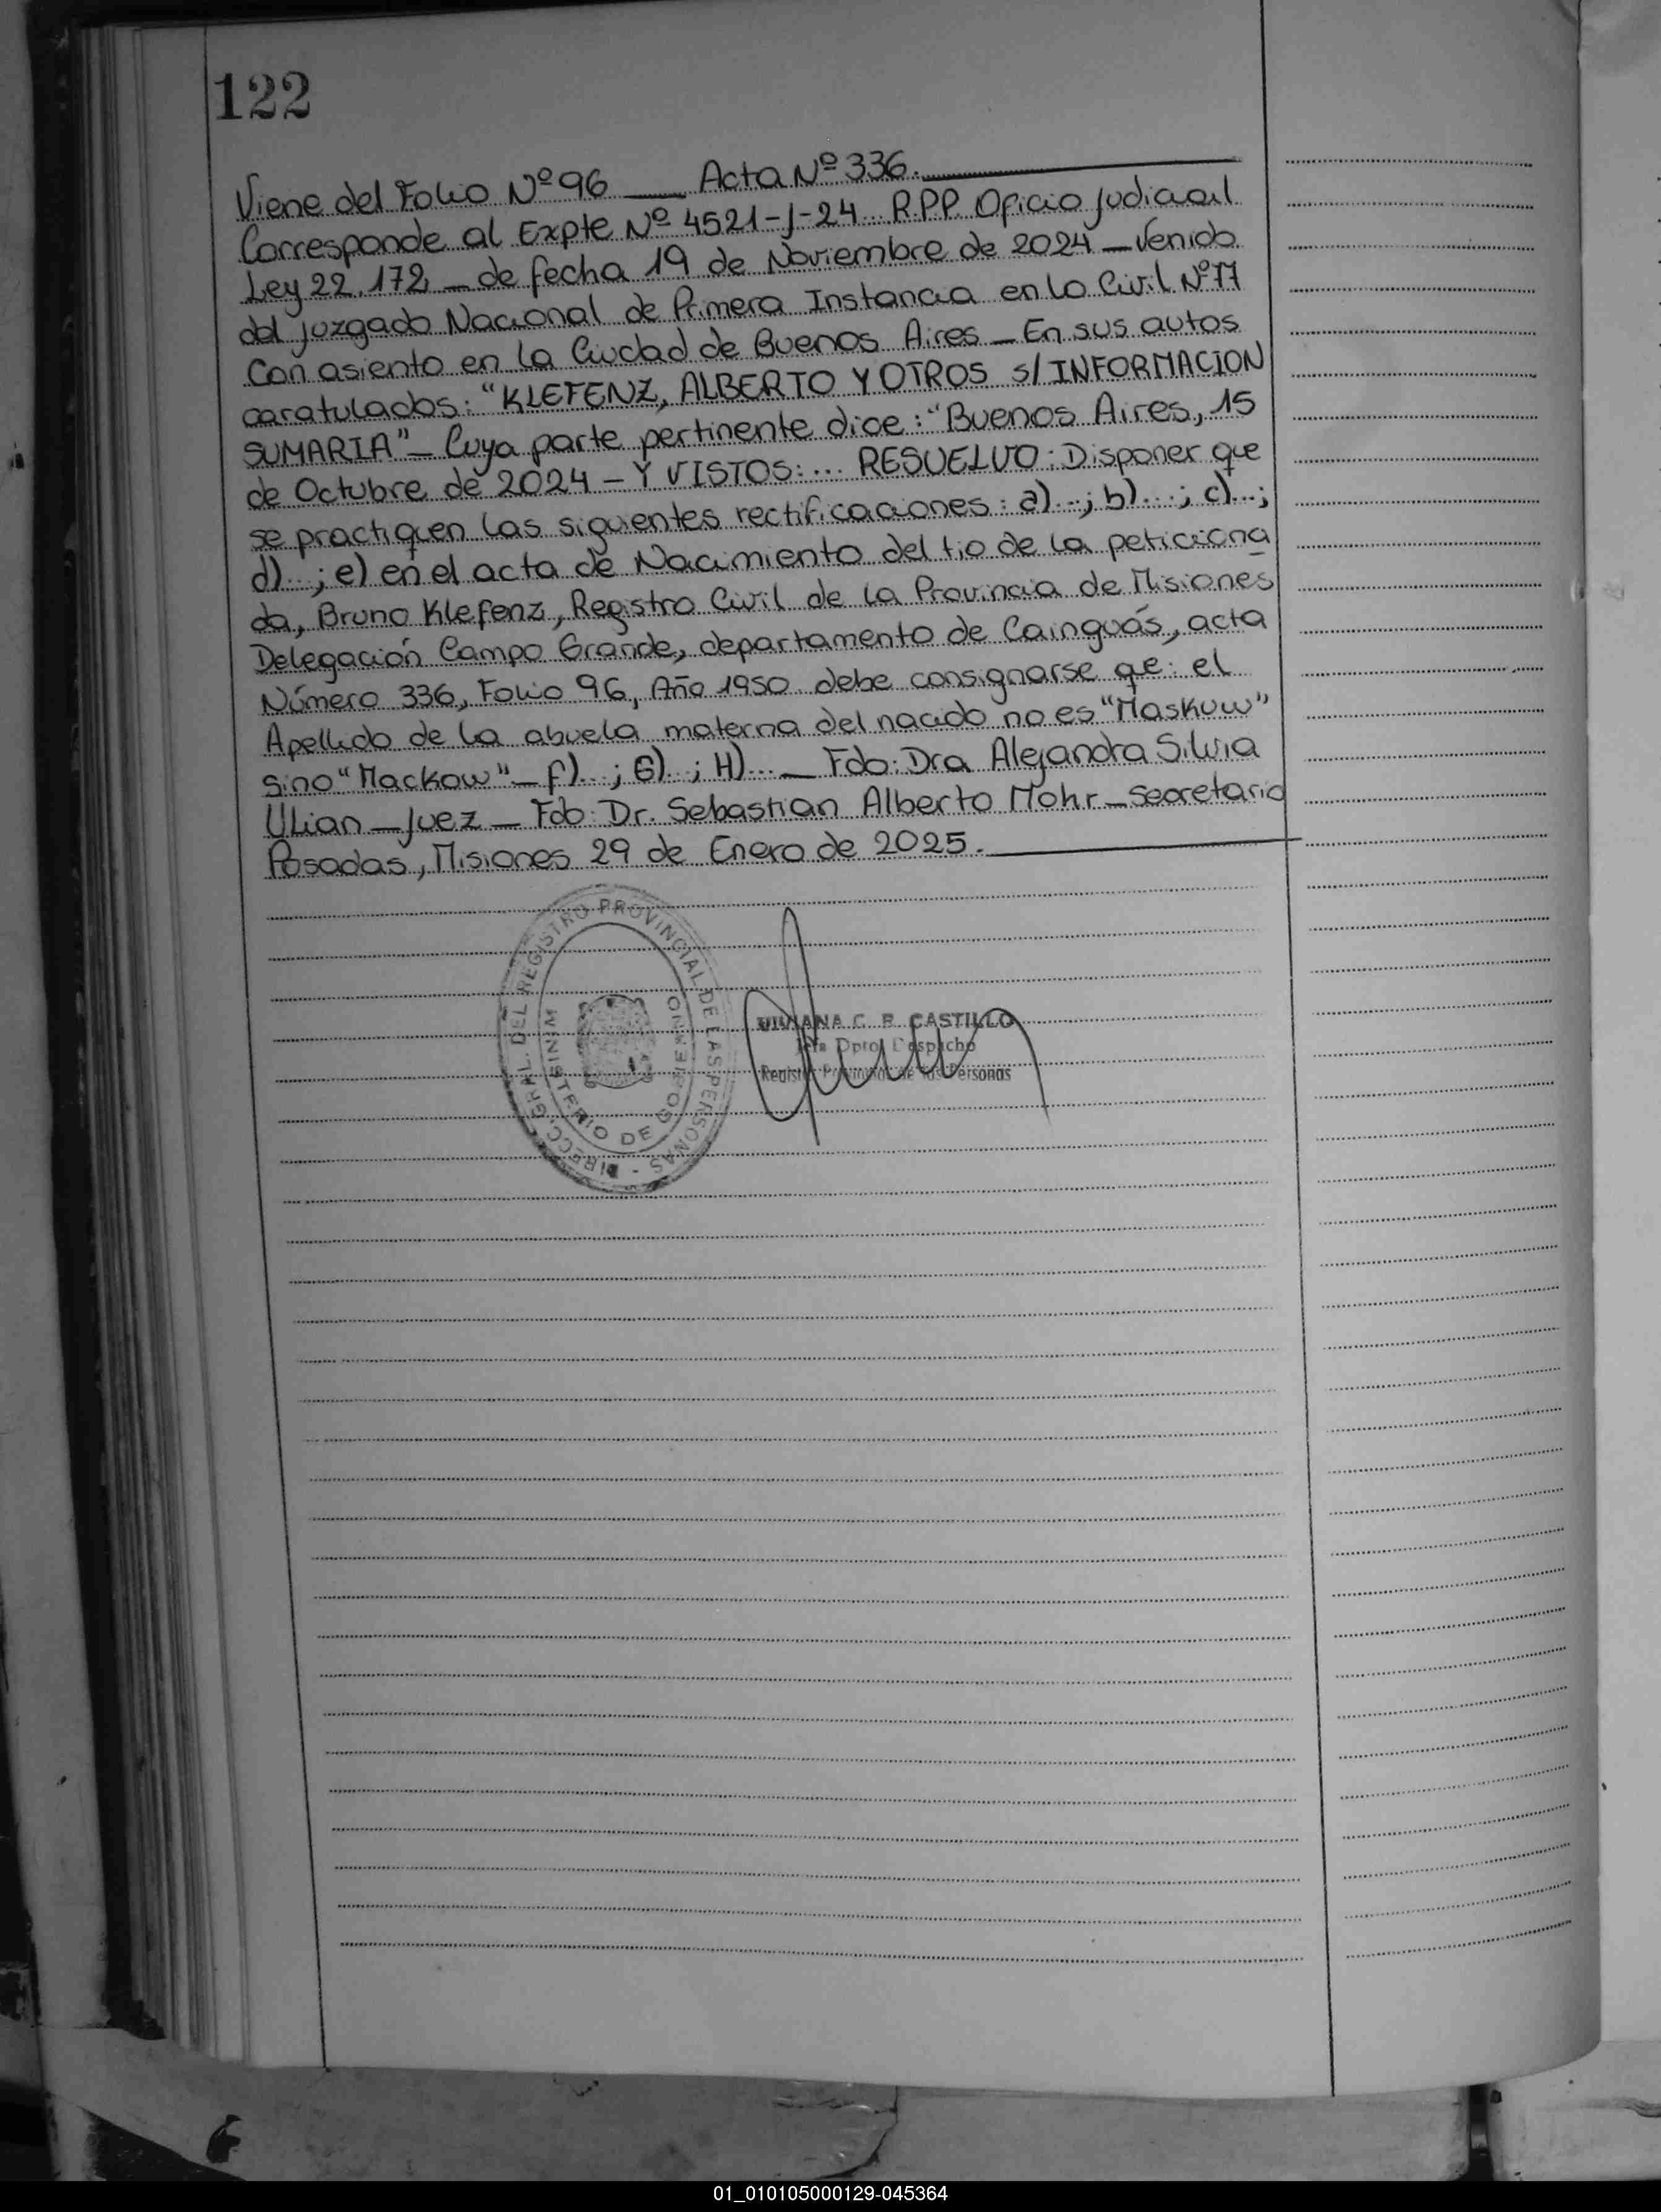 122
Viene del Folio Nº 96 __ Acta Nº 336.
Corresponde al Expte Nº 4521-J-24.. R.P.P. Oficio Judicial
Ley 22.172 _ de fecha 19 de Noviembre de 2024 _ Venido
del Juzgado Nacional de Primera Instancia en lo Civil Nº 77
Con asiento en la Ciudad de Buenos Aires _ En sus autos
caratulados: "KLEFENZ, ALBERTO Y OTROS s/ INFORMACION
SUMARIA" _ Cuya parte pertinente dice: "Buenos Aires, 15
de Octubre de 2024 - Y VISTOS: ... RESUELVO: Disponer que
se practiquen las siguientes rectificaciones: a)...; b)...; c)...;
d)...; e) en el acta de Nacimiento del tio de la peticiona
da, Bruno Klefenz, Registro Civil de la Provincia de Misiones
Delegación Campo Grande, departamento de Cainguás, acta
Número 336, Folio 96, Año 1950 debe consignarse que: el
Apellido de la abuela materna del nacido no es "Maskuw"
sino "Mackow" _ f)...; G)...; H)... _ Fdo: Dra Alejandra Silvia
Ulian _ Juez _ Fdo: Dr. Sebastian Alberto Mohr _ Secretario
Posadas, Misiones 29 de Enero de 2025.
DIRECC. GRAL. DEL REGISTRO PROVINCIAL DE LAS PERSONAS -
MINISTERIO DE GOBIERNO
C. R. CASTILLO
Jefa Dpto. Despacho
Registro Provincial de las Personas
01_010105000129-045364